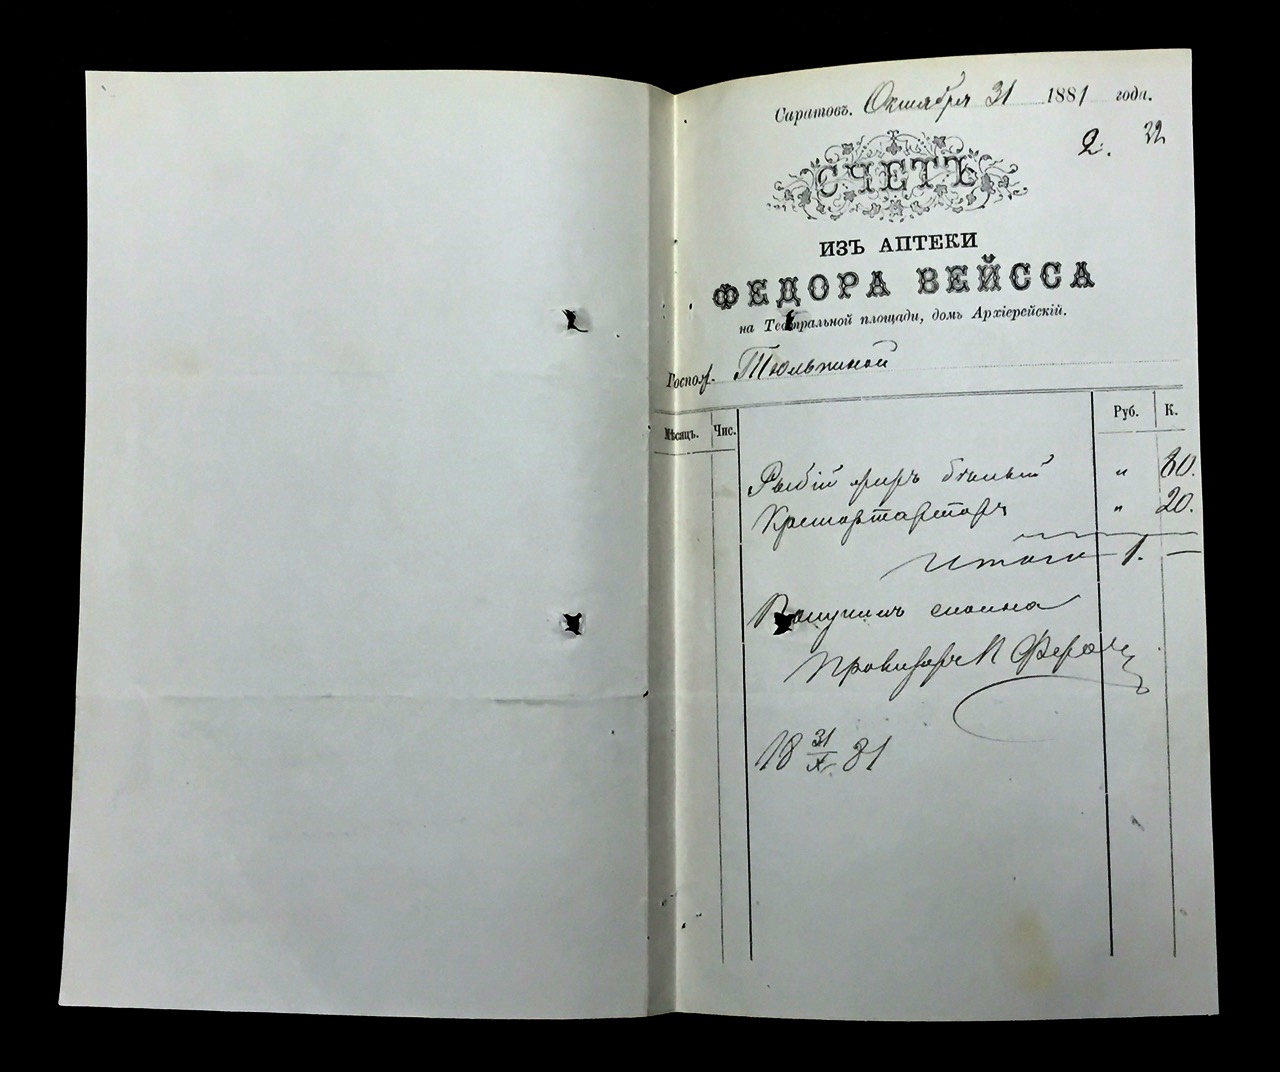 Саратовъ. Октября 31 1881 года.
2. 32
СЧЕТЪ
ИЗЪ АПТЕКИ
ФЕДОРА ВЕЙССА
на Театральной площади, домъ Архіерейскій.
Госпож. Тюльпиной
Мѣсяцъ. Чис. Руб. К.
Рыбій жиръ бѣлый " 80.
Кремортартаръ " 20.
Итого 1. —
Получилъ сполна
Провизоръ
18 31/X 81